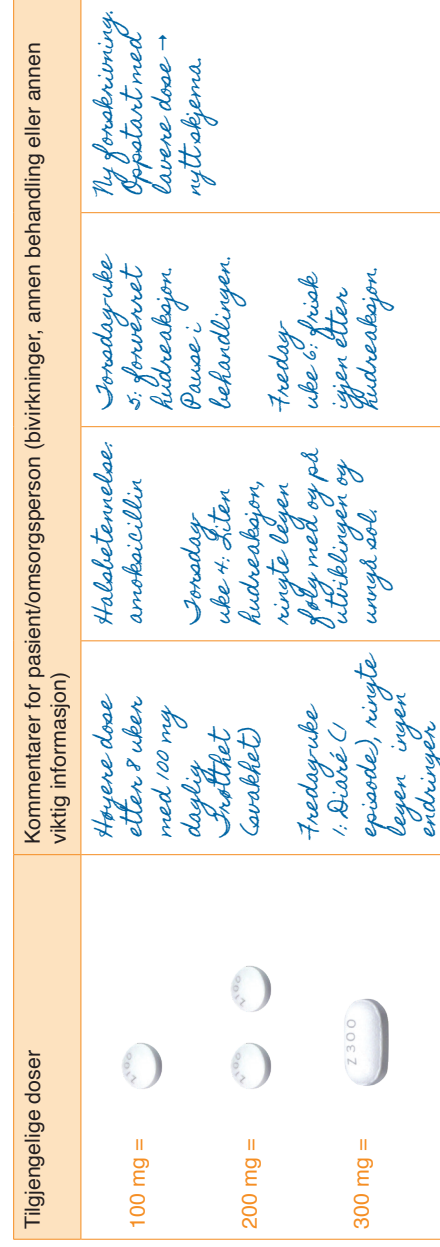 Tilgjengelige doser
Kommentarer for pasient/omsorgsperson (bivirkninger, annen behandling eller annen
viktig informasjon)
100 mg =
Z100
200 mg =
Z100
Z100
300 mg =
Z 300
Høyere dose
etter 8 uker
med 100 mg
daglig
Trøtthet
(svakhet)
Fredag-uke
1: Diaré (1
episode), ringte
legen ingen
endringer
Halsbetennelse:
amoksicillin
Torsdag-
uke 4: Liten
hudreaksjon,
ringte legen
følg med og på
utviklingen og
unngå sol.
Torsdag-uke
5: forverret
hudreaksjon.
Pause i
behandlingen.
Fredag-
uke 6: frisk
igjen etter
hudreaksjon.
Ny forskrivning.
Oppstart med
lavere dose →
nytt skjema.